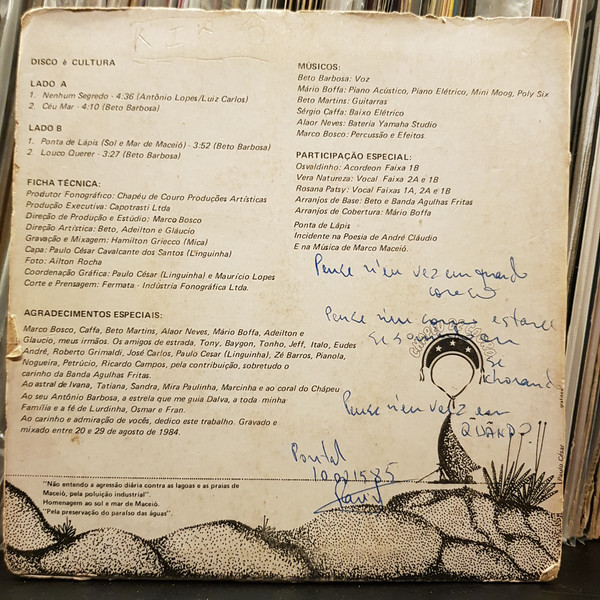 DISCO é CULTURA
LADO A
1. Nenhum Segredo - 4:36 (Antônio Lopes/Luiz Carlos)
2. Céu Mar - 4:10 (Beto Barbosa)
LADO B
1. Ponta de Lápis (Sol e Mar de Maceió) - 3:52 (Beto Barbosa)
2. Louco Querer - 3:27 (Beto Barbosa)
FICHA TÉCNICA:
Produtor Fonográfico: Chapéu de Couro Produções Artísticas
Produção Executiva: Capotrasti Ltda
Direção de Produção e Estúdio: Marco Bosco
Direção Artística: Beto, Adeilton e Gláucio
Gravação e Mixagem: Hamilton Griecco (Mica)
Capa: Paulo César Cavalcante dos Santos (Linguinha)
Foto: Ailton Rocha
Coordenação Gráfica: Paulo César (Linguinha) e Maurício Lopes
Corte e Prensagem: Fermata - Indústria Fonográfica Ltda.
AGRADECIMENTOS ESPECIAIS:
Marco Bosco, Caffa, Beto Martins, Alaor Neves, Mário Boffa, Adeilton e
Glaucio, meus irmãos. Os amigos de estrada, Tony, Baygon, Tonho, Jeff, Italo, Eudes
André, Roberto Grimaldi, José Carlos, Paulo Cesar (Linguinha), Zé Barros, Pianola,
Nogueira, Petrúcio, Ricardo Campos, pela contribuição, sobretudo o
carinho da Banda Agulhas Fritas.
Ao astral de Ivana, Tatiana, Sandra, Mira Paulinha, Marcinha e ao coral do Chápeu
Ao seu Antônio Barbosa, a estrela que me guia Dalva, a toda minha
Família e a fé de Lurdinha, Osmar e Fran.
Ao carinho e admiração de vocês, dedico este trabalho. Gravado e
mixado entre 20 e 29 de agosto de 1984.
"Não entendo a agressão diária contra as lagoas e as praias de
Maceió, pela poluição industrial".
Homenagem ao sol e mar de Maceió.
"Pela preservação do paraíso das águas".
MÚSICOS:
Beto Barbosa: Voz
Mário Boffa: Piano Acústico, Piano Elétrico, Mini Moog, Poly Six
Beto Martins: Guitarras
Sérgio Caffa: Baixo Elétrico
Alaor Neves: Bateria Yamaha Studio
Marco Bosco: Percussão e Efeitos
PARTICIPAÇÃO ESPECIAL:
Osvaldinho: Acordeon Faixa 1B
Vera Natureza: Vocal Faixa 2A e 1B
Rosana Patsy: Vocal Faixas 1A, 2A e 1B
Arranjos de Base: Beto e Banda Agulhas Fritas
Arranjos de Cobertura: Mário Boffa
Ponta de Lápis
Incidente na Poesia de André Cláudio
E na Música de Marco Maceió.
Pense n'eu vez em quando
Pense n'eu vez em
QUANDO?
Pontal
Paulo César